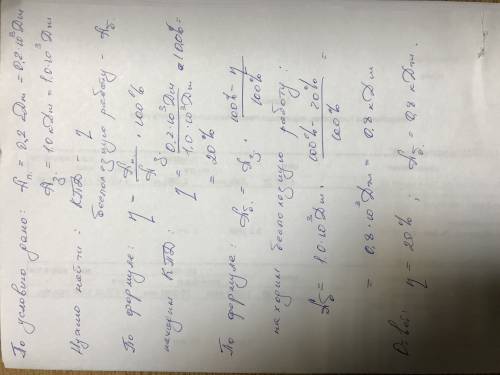 По условию дано: Aп. = 0,2 Дж = 0,2·10³ Дж
Aз. = 1,0 кДж = 1,0·10³ Дж
Нужно найти: КПД - η
бесполезную работу - Aб.
По формуле: η = Aп. / Aз · 100%
находим КПД: η = 0,2·10³ Дж / 1,0·10³ Дж · 100% =
= 20%
По формуле: Aб. = Aз. · 100% - η / 100%
находим бесполезную работу:
Aб = 1,0·10³ Дж · 100% - 20% / 100% =
= 0,8·10³ Дж = 0,8 кДж
Ответ: η = 20% ; Aб. = 0,8 кДж.